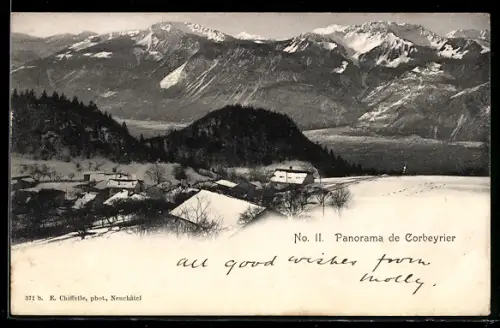 No. 11. Panorama de Corbeyrier
all good wishes from
Molly.
371 b. E. Chiffelle, phot., Neuchâtel